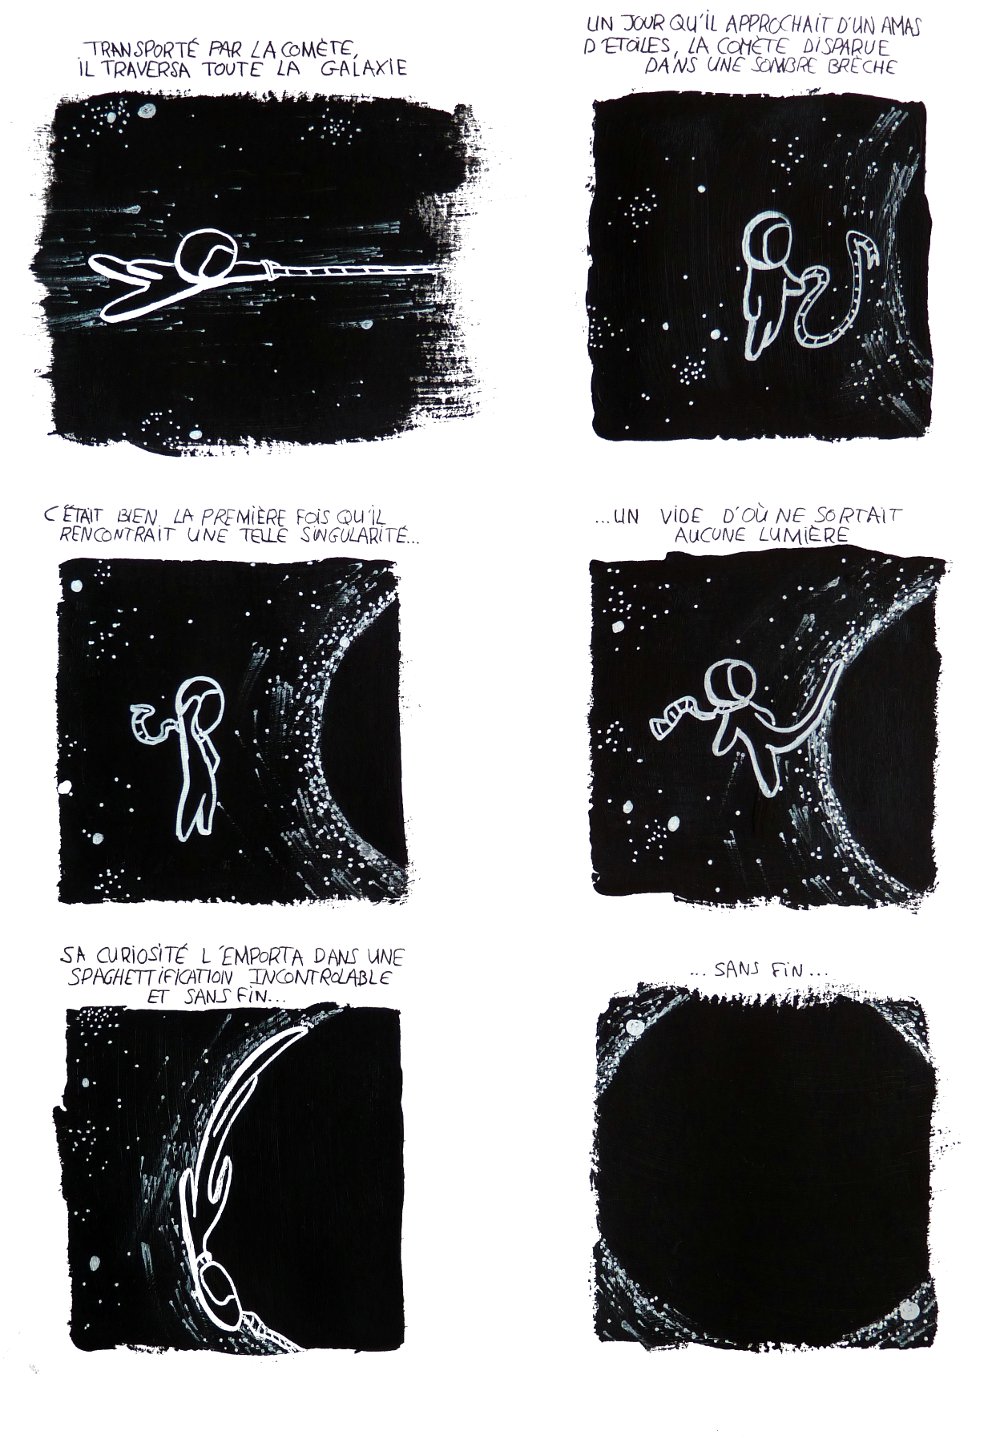 TRANSPORTÉ PAR LA COMÈTE,
IL TRAVERSA TOUTE LA GALAXIE
UN JOUR QU'IL APPROCHAIT D'UN AMAS
D'ETOILES, LA COMÈTE DISPARUE
DANS UNE SOMBRE BRÈCHE
C'ÉTAIT BIEN LA PREMIÈRE FOIS QU'IL
RENCONTRAIT UNE TELLE SINGULARITÉ...
...UN VIDE D'OÙ NE SORTAIT
AUCUNE LUMIÈRE
SA CURIOSITÉ L'EMPORTA DANS UNE
SPAGHETTIFICATION INCONTROLABLE
ET SANS FIN...
... SANS FIN...